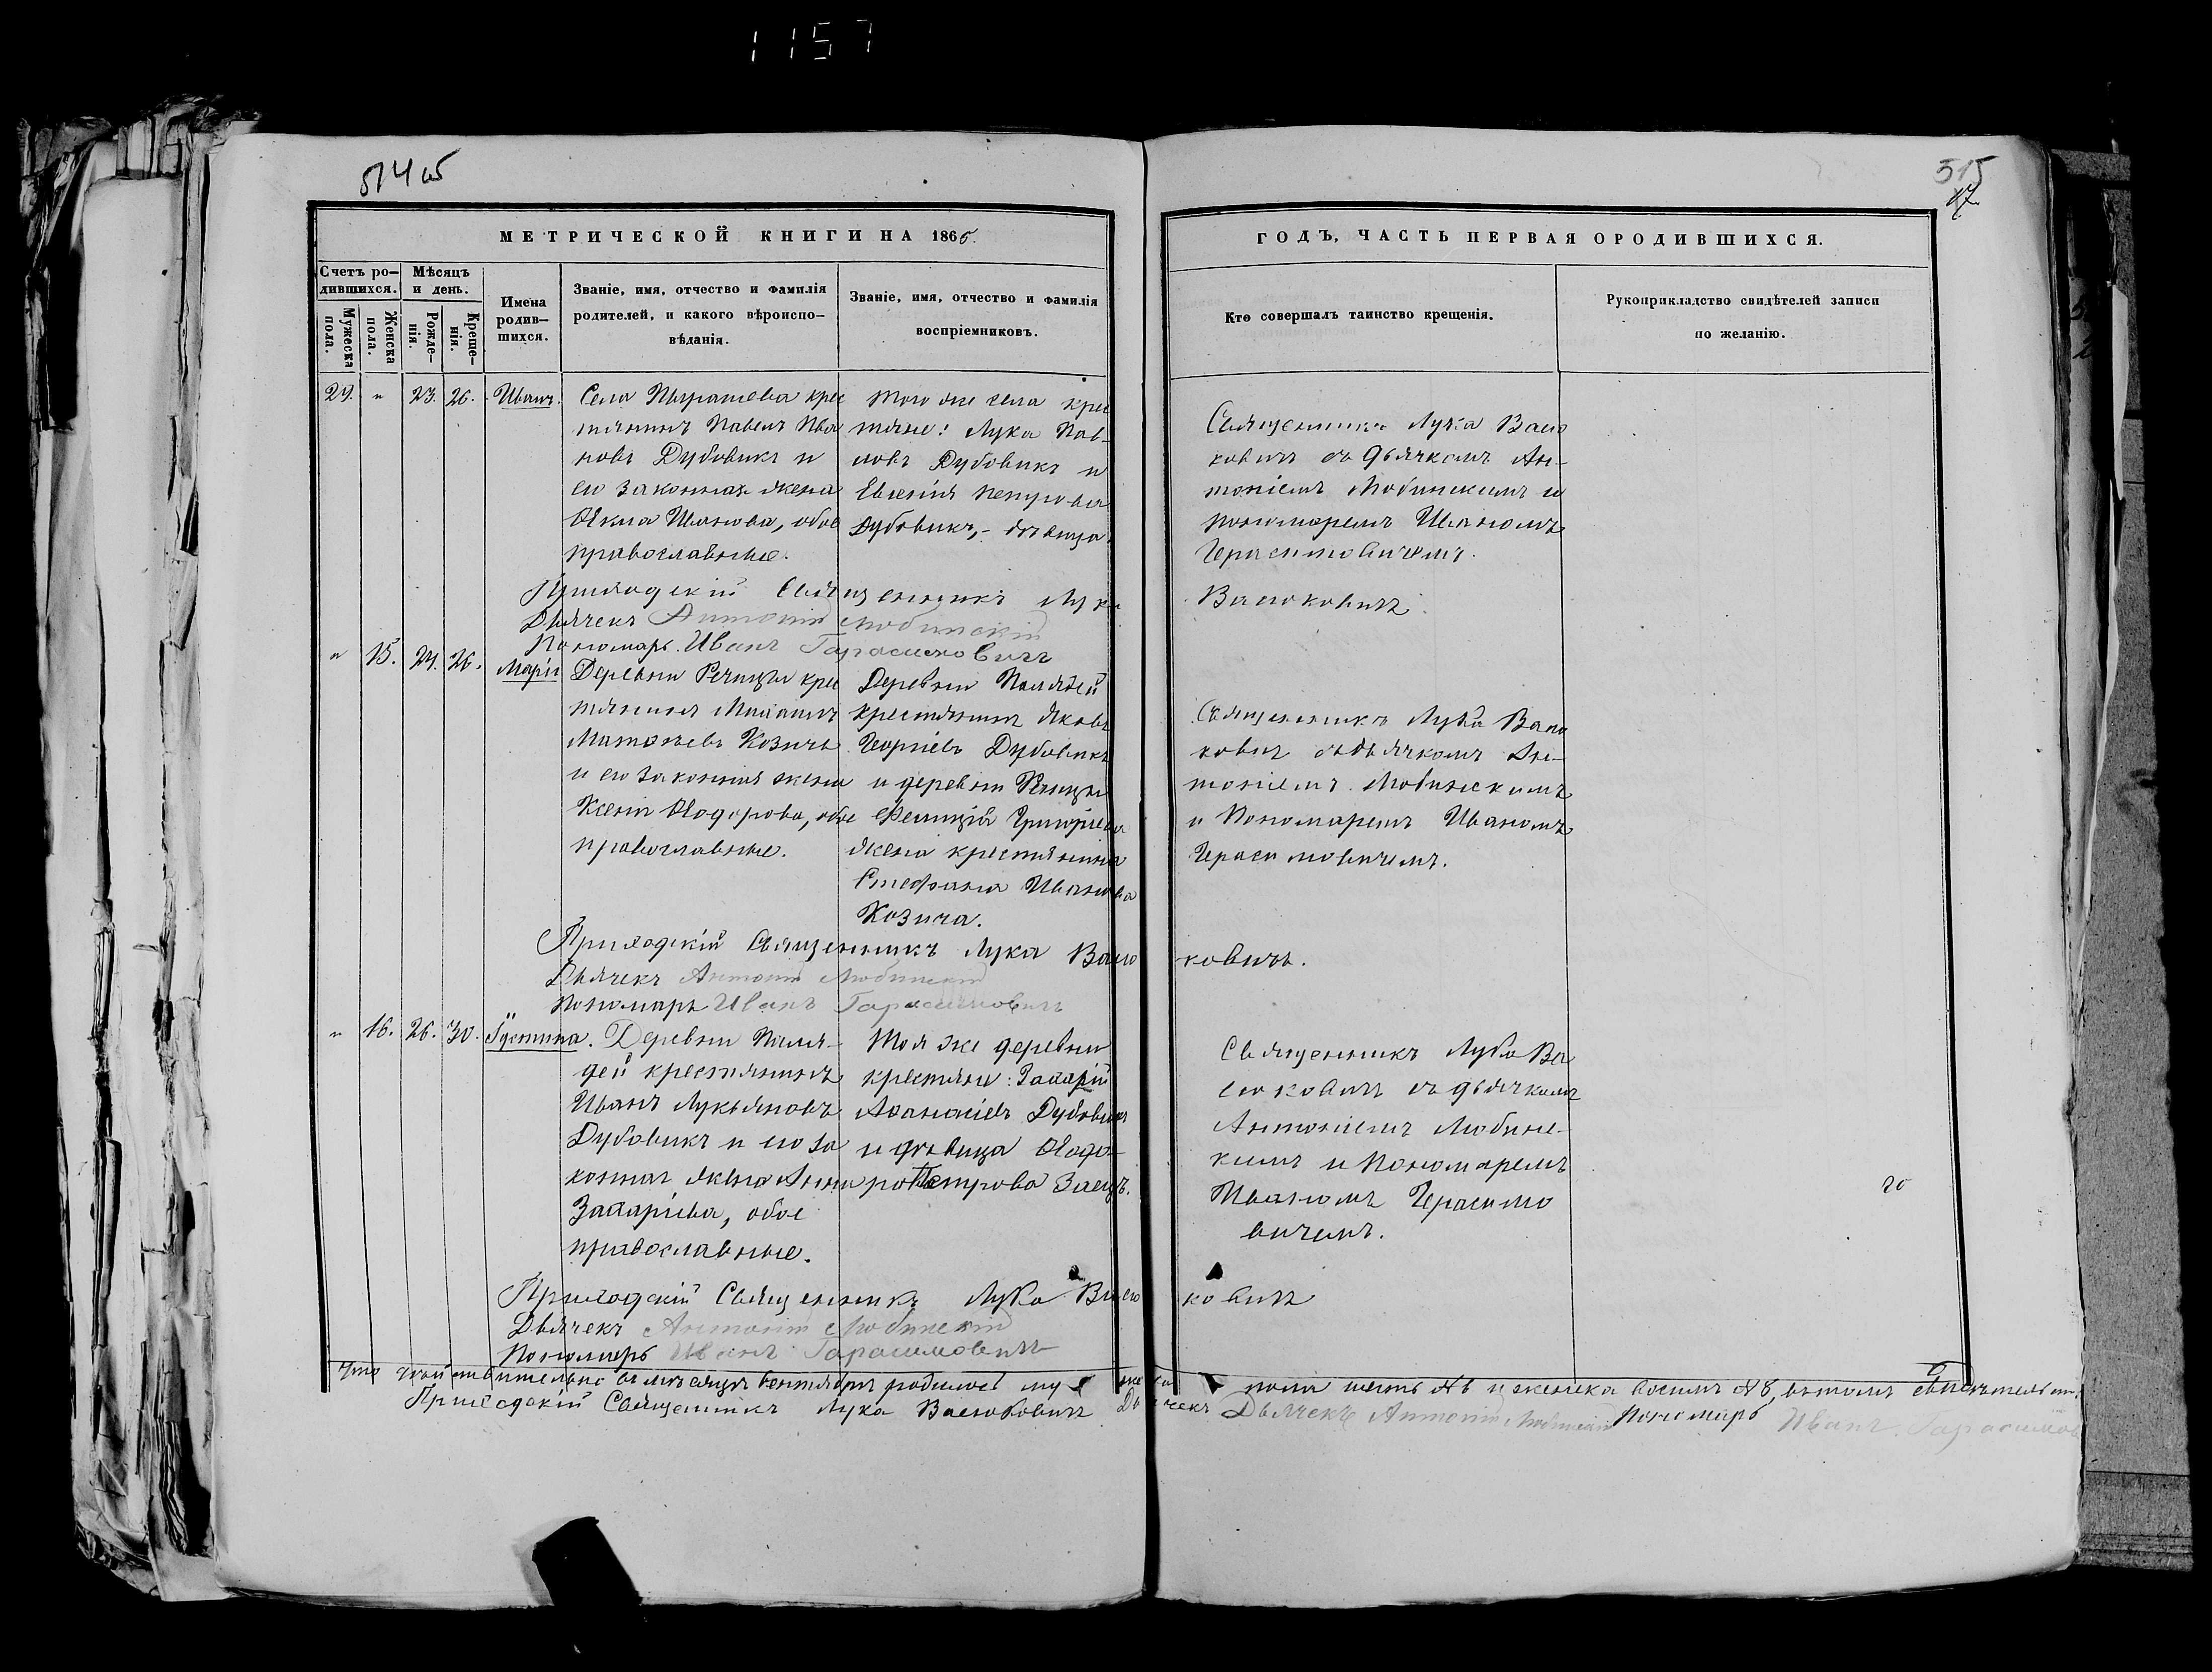 1157
514 об
515
17
МЕТРИЧЕСКОЙ КНИГИ НА 1866.
ГОДЪ, ЧАСТЬ ПЕРВАЯ О РОДИВШИХСЯ.
Счетъ ро-
дившихся.
Мѣсяцъ
и день.
Мужеска
пола.
Женска
пола.
Рожде-
нія.
Креще-
нія.
Имена
родив-
шихся.
Званіе, имя, отчество и фамилія
родителей, и какого вѣроиспо-
вѣданія.
Званіе, имя, отчество и фамилія
воспріемниковъ.
Кто совершалъ таинство крещенія.
Рукоприкладство свидѣтелей записи
по желанію.
29. " 23. 26. Иванъ.
Села крес
тянинъ Павелъ Ива
новъ Дубовикъ и
его законная жена
Иванова, обое
православные.
Того же села крес
тяне: Лука Пав-
ловъ Дубовикъ и
Петрова
Дубовикъ,- дѣвица.
Священникъ Лука Васю
ковичъ съ дьячкомъ Ан-
тоніемъ Любинскимъ и
пономаремъ Иваномъ
Герасимовичемъ.
Приходскій Священникъ Лука Васюковичъ
Дьячекъ Антоній Любинскій
Пономарь Иванъ Гарасимовичъ
" 15. 24. 26. Марія
Деревни Речицы крес
тянинъ Михаилъ
Матвѣевъ Козичъ
и его законная жена
Ксенія Ѳодорова, обое
православные.
Деревни
крестянинъ Яковъ
Георгіевъ Дубовикъ
и деревни Речицы
Григоріева
жена крестянина
Стефана Иванова
Козича.
Священникъ Лука Васю
ковичъ съ дьячкомъ Ан-
тоніемъ Любинскимъ
и Пономаремъ Иваномъ
Герасимовичемъ.
Приходскій Священникъ Лука Васюковичъ.
Дьячекъ Антоній Любинскій
Пономарь Иванъ Гарасимовичъ
" 16. 26. 30. Іустина.
Деревни
крестянинъ
Иванъ Лукьяновъ
Дубовикъ и его за
конная жена Анна
Захаріева, обое
православные.
Тоя же деревни
крестяне: Захарій
Аѳанасіевъ Дубовикъ
и дѣвица Ѳодо-
ра Петрова Заецъ.
Священникъ Лука Ва
сюковичъ съ дьячкомъ
Антоніемъ Любинс-
кимъ и Пономаремъ
Иваномъ Герасимо
вичемъ.
20
Приходскій Священникъ Лука Васюковичъ
Дьячекъ Антоній Любинскій
Пономарь Иванъ Гарасимовичъ
Что дѣйствительно въ мѣсяцѣ Сентябрѣ родилось мужеска пола шесть №6 и женска восемь №8, въ томъ
Приходскій Священникъ Лука Васюковичъ Дьячекъ Дьячекъ Антоній Любинскій Пономарь Иванъ Гарасимов